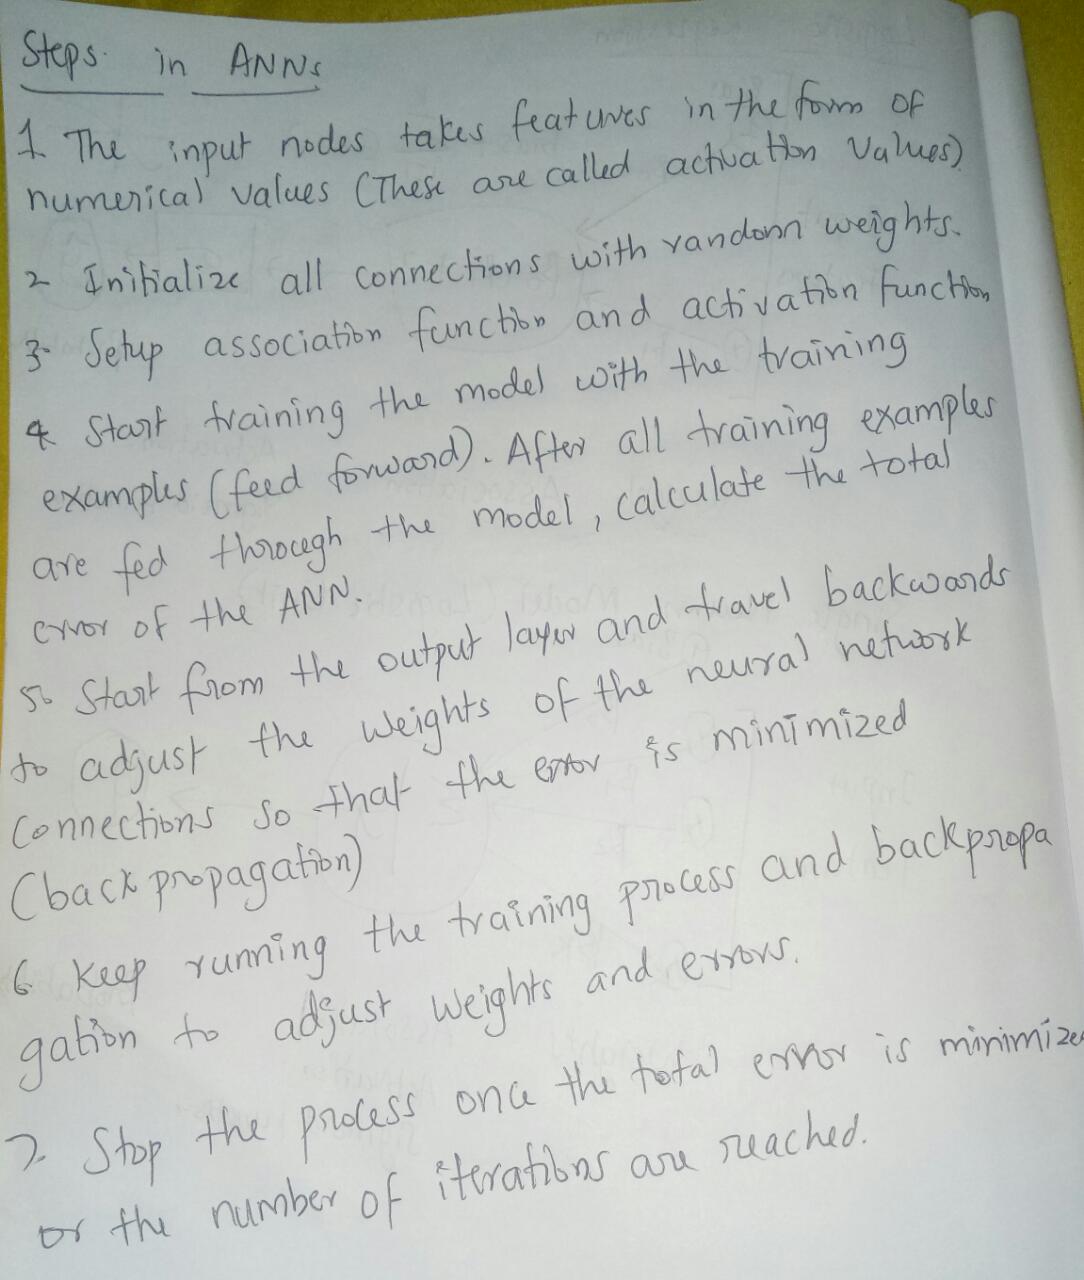 Steps in ANNs
1 The input nodes takes features in the form of
numerical values (These are called activation values)
2 Initialize all connections with random weights.
3 Setup association function and activation function
4 Start training the model with the training
examples (feed forward). After all training examples
are fed through the model, calculate the total
error of the ANN.
5. Start from the output layer and travel backwards
to adjust the weights of the neural network
connections so that the error is minimized
(back propagation)
6 Keep running the training process and backpropa
gation to adjust weights and errors.
7 Stop the process once the total error is minimize
or the number of iterations are reached.